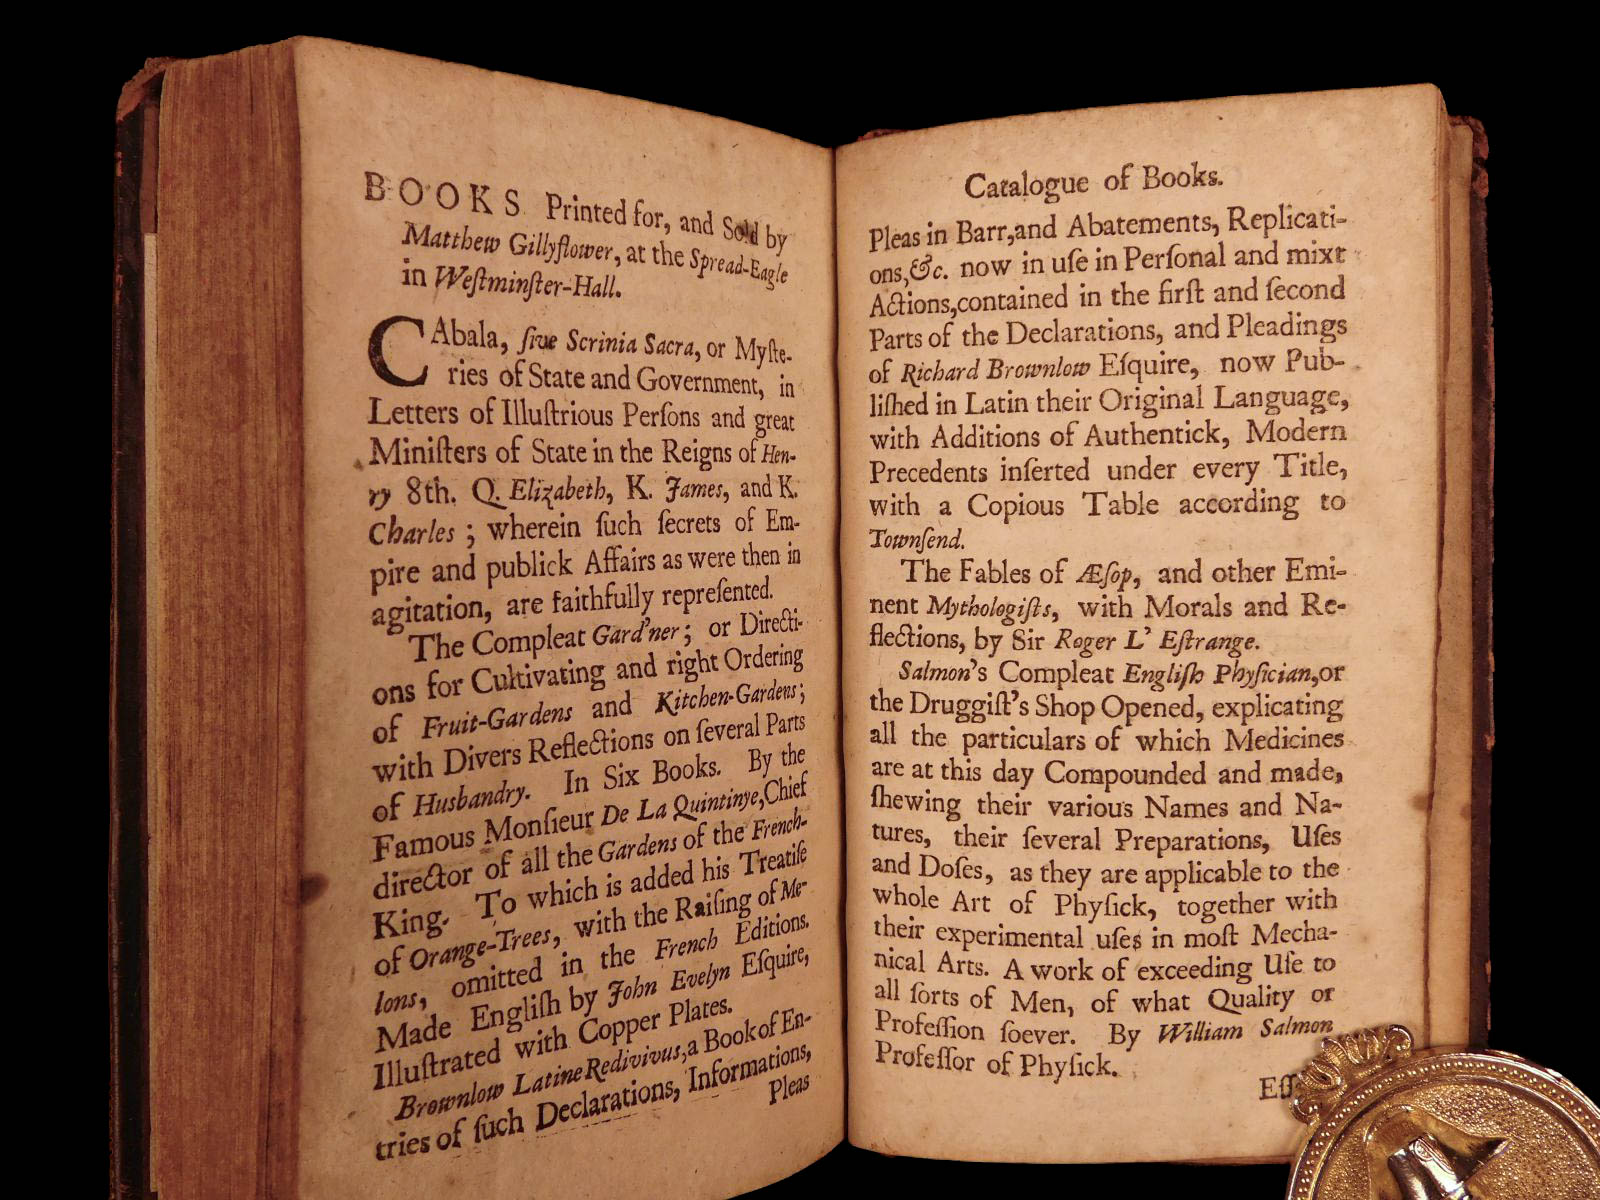 BOOKS Printed for, and Sold by
Matthew Gillyflower, at the Spread-Eagle
in Weſtminſter-Hall.
CAbala, ſive Scrinia Sacra, or Myſte-
ries of State and Government, in
Letters of Illuſtrious Perſons and great
Miniſters of State in the Reigns of Hen-
ry 8th. Q. Elizabeth, K. James, and K.
Charles; wherein ſuch ſecrets of Em-
pire and publick Affairs as were then in
agitation, are faithfully repreſented.
The Compleat Gard'ner; or Directi-
ons for Cultivating and right Ordering
of Fruit-Gardens and Kitchen-Gardens;
with Divers Reflections on ſeveral Parts
of Husbandry. In Six Books. By the
Famous Monſieur De La Quintinye, Chief
director of all the Gardens of the French-
King. To which is added his Treatiſe
of Orange-Trees, with the Raiſing of Me-
lons, omitted in the French Editions.
Made Engliſh by John Evelyn Eſquire,
Illuſtrated with Copper Plates.
Brownlow Latine Redivivus, a Book of En-
tries of ſuch Declarations, Informations,
Pleas
Catalogue of Books.
Pleas in Barr, and Abatements, Replicati-
ons, &c. now in uſe in Perſonal and mixt
Actions, contained in the firſt and ſecond
Parts of the Declarations, and Pleadings
of Richard Brownlow Eſquire, now Pub-
liſhed in Latin their Original Language,
with Additions of Authentick, Modern
Precedents inſerted under every Title,
with a Copious Table according to
Townſend.
The Fables of Æſop, and other Emi-
nent Mythologiſts, with Morals and Re-
flections, by Sir Roger L' Eſtrange.
Salmon's Compleat Engliſh Phyſician, or
the Druggiſt's Shop Opened, explicating
all the particulars of which Medicines
are at this day Compounded and made,
ſhewing their various Names and Na-
tures, their ſeveral Preparations, Uſes
and Doſes, as they are applicable to the
whole Art of Phyſick, together with
their experimental uſes in moſt Mecha-
nical Arts. A work of exceeding Uſe to
all ſorts of Men, of what Quality or
Profeſſion ſoever. By William Salmon
Profeſſor of Phyſick.